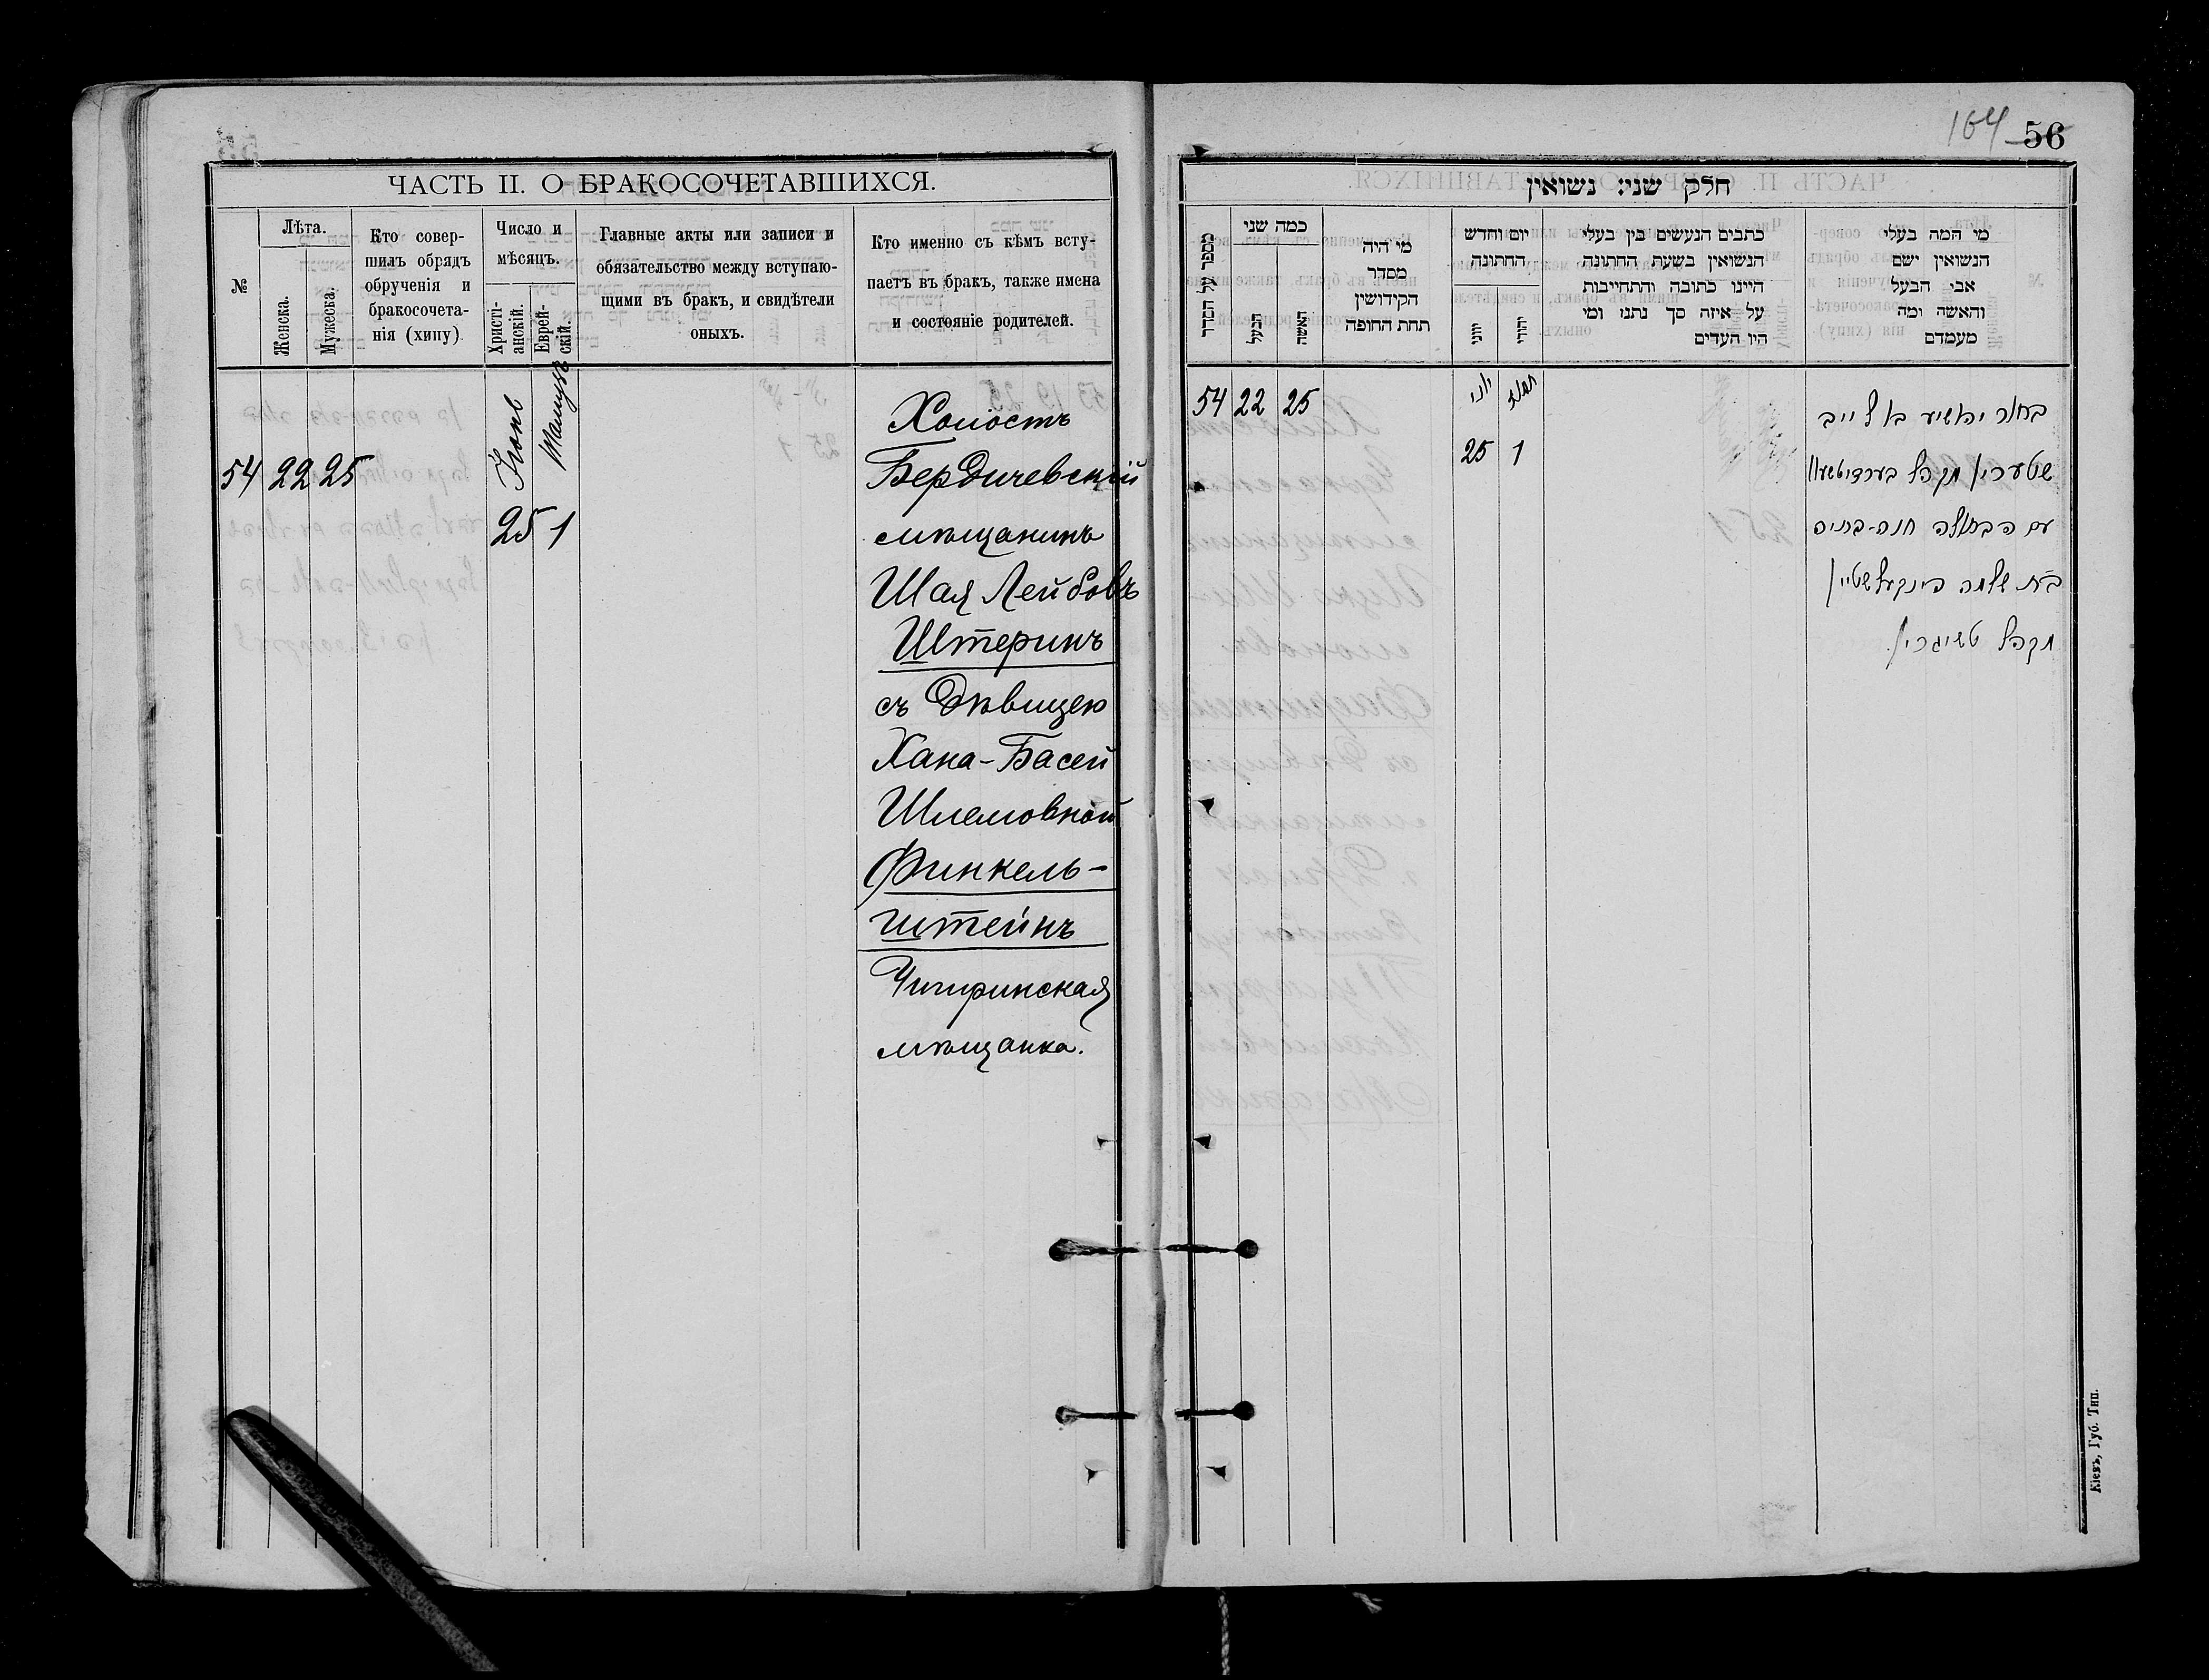 ЧАСТЬ II. О БРАКОСОЧЕТАВШИХСЯ.
№
Лѣта.
Женска.
Мужеска.
Кто совер-
шилъ обрядъ
обрученія и
бракосочета-
нія (хипу)
Число и
мѣсяцъ.
Христі-
анскій.
Еврей-
скій.
Главные акты или записи и
обязательство между вступаю-
щими въ бракъ, и свидѣтели
оныхъ.
Кто именно съ кѣмъ всту-
паетъ въ бракъ, также имена
и состояніе родителей.
54 22 25
Іюнь
25 1
Холостъ
Бердичевскій
мѣщанинъ
Шая Лейбовъ
Штеринъ
съ дѣвицею
Хана-Басей
Шлемовной
Финкель-
штейнъ
Чигиринская
мѣщанка.
164 56
חלק שני: נשואין
מספר על הסדר
כמה שני
הבעל
האשה
מי היה
מסדר
הקידושין
תחת החופה
יום וחדש
החתונה
יווני
יהודי
כתבים הנעשים בין בעלי
הנשואין בשעת החתונה
היינו כתובה והתחייבות
על איזה סך נתנו ומי
היו העדים
מי המה בעלי
הנשואין ישם
אבי הבעל
והאשה ומה
מעמדם
54 22 25
יוני תמוז
25 1
בחור יהושיע בן לייב
שטערין מקהל בערדיטשעוו
עם הבתולה חנה-בתיה
בת שלמה פינקעלשטיין
מקהל טשיגרין
Кіевъ, Губ. Тип.